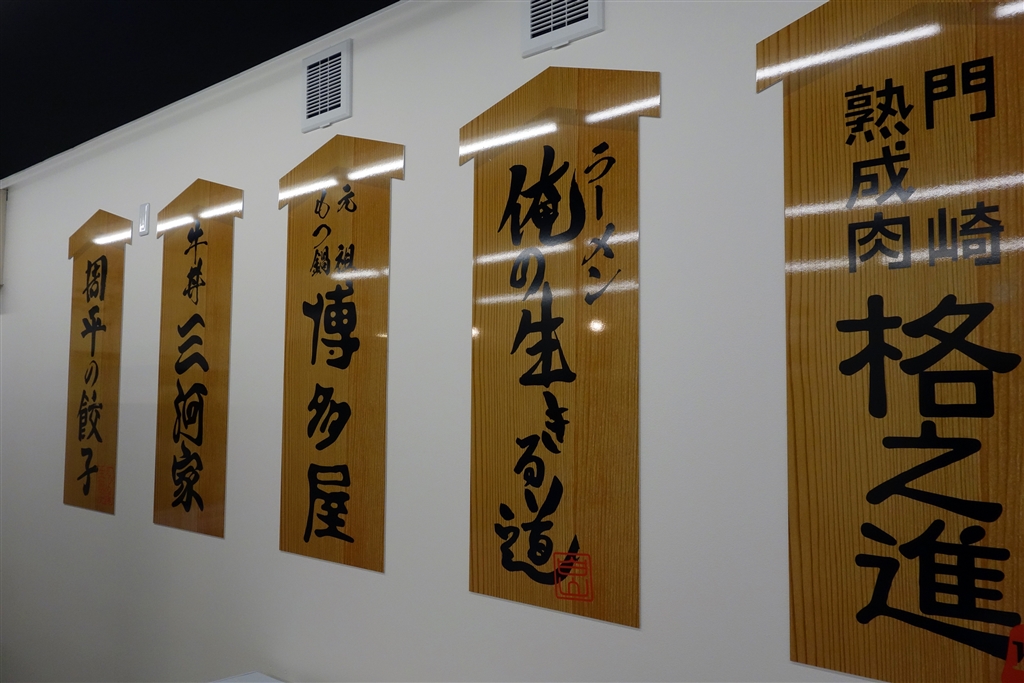 門崎
熟成肉
格之進
ラーメン
俺の生きる道
元祖
もつ鍋
博多屋
牛丼
三河家
周平の餃子